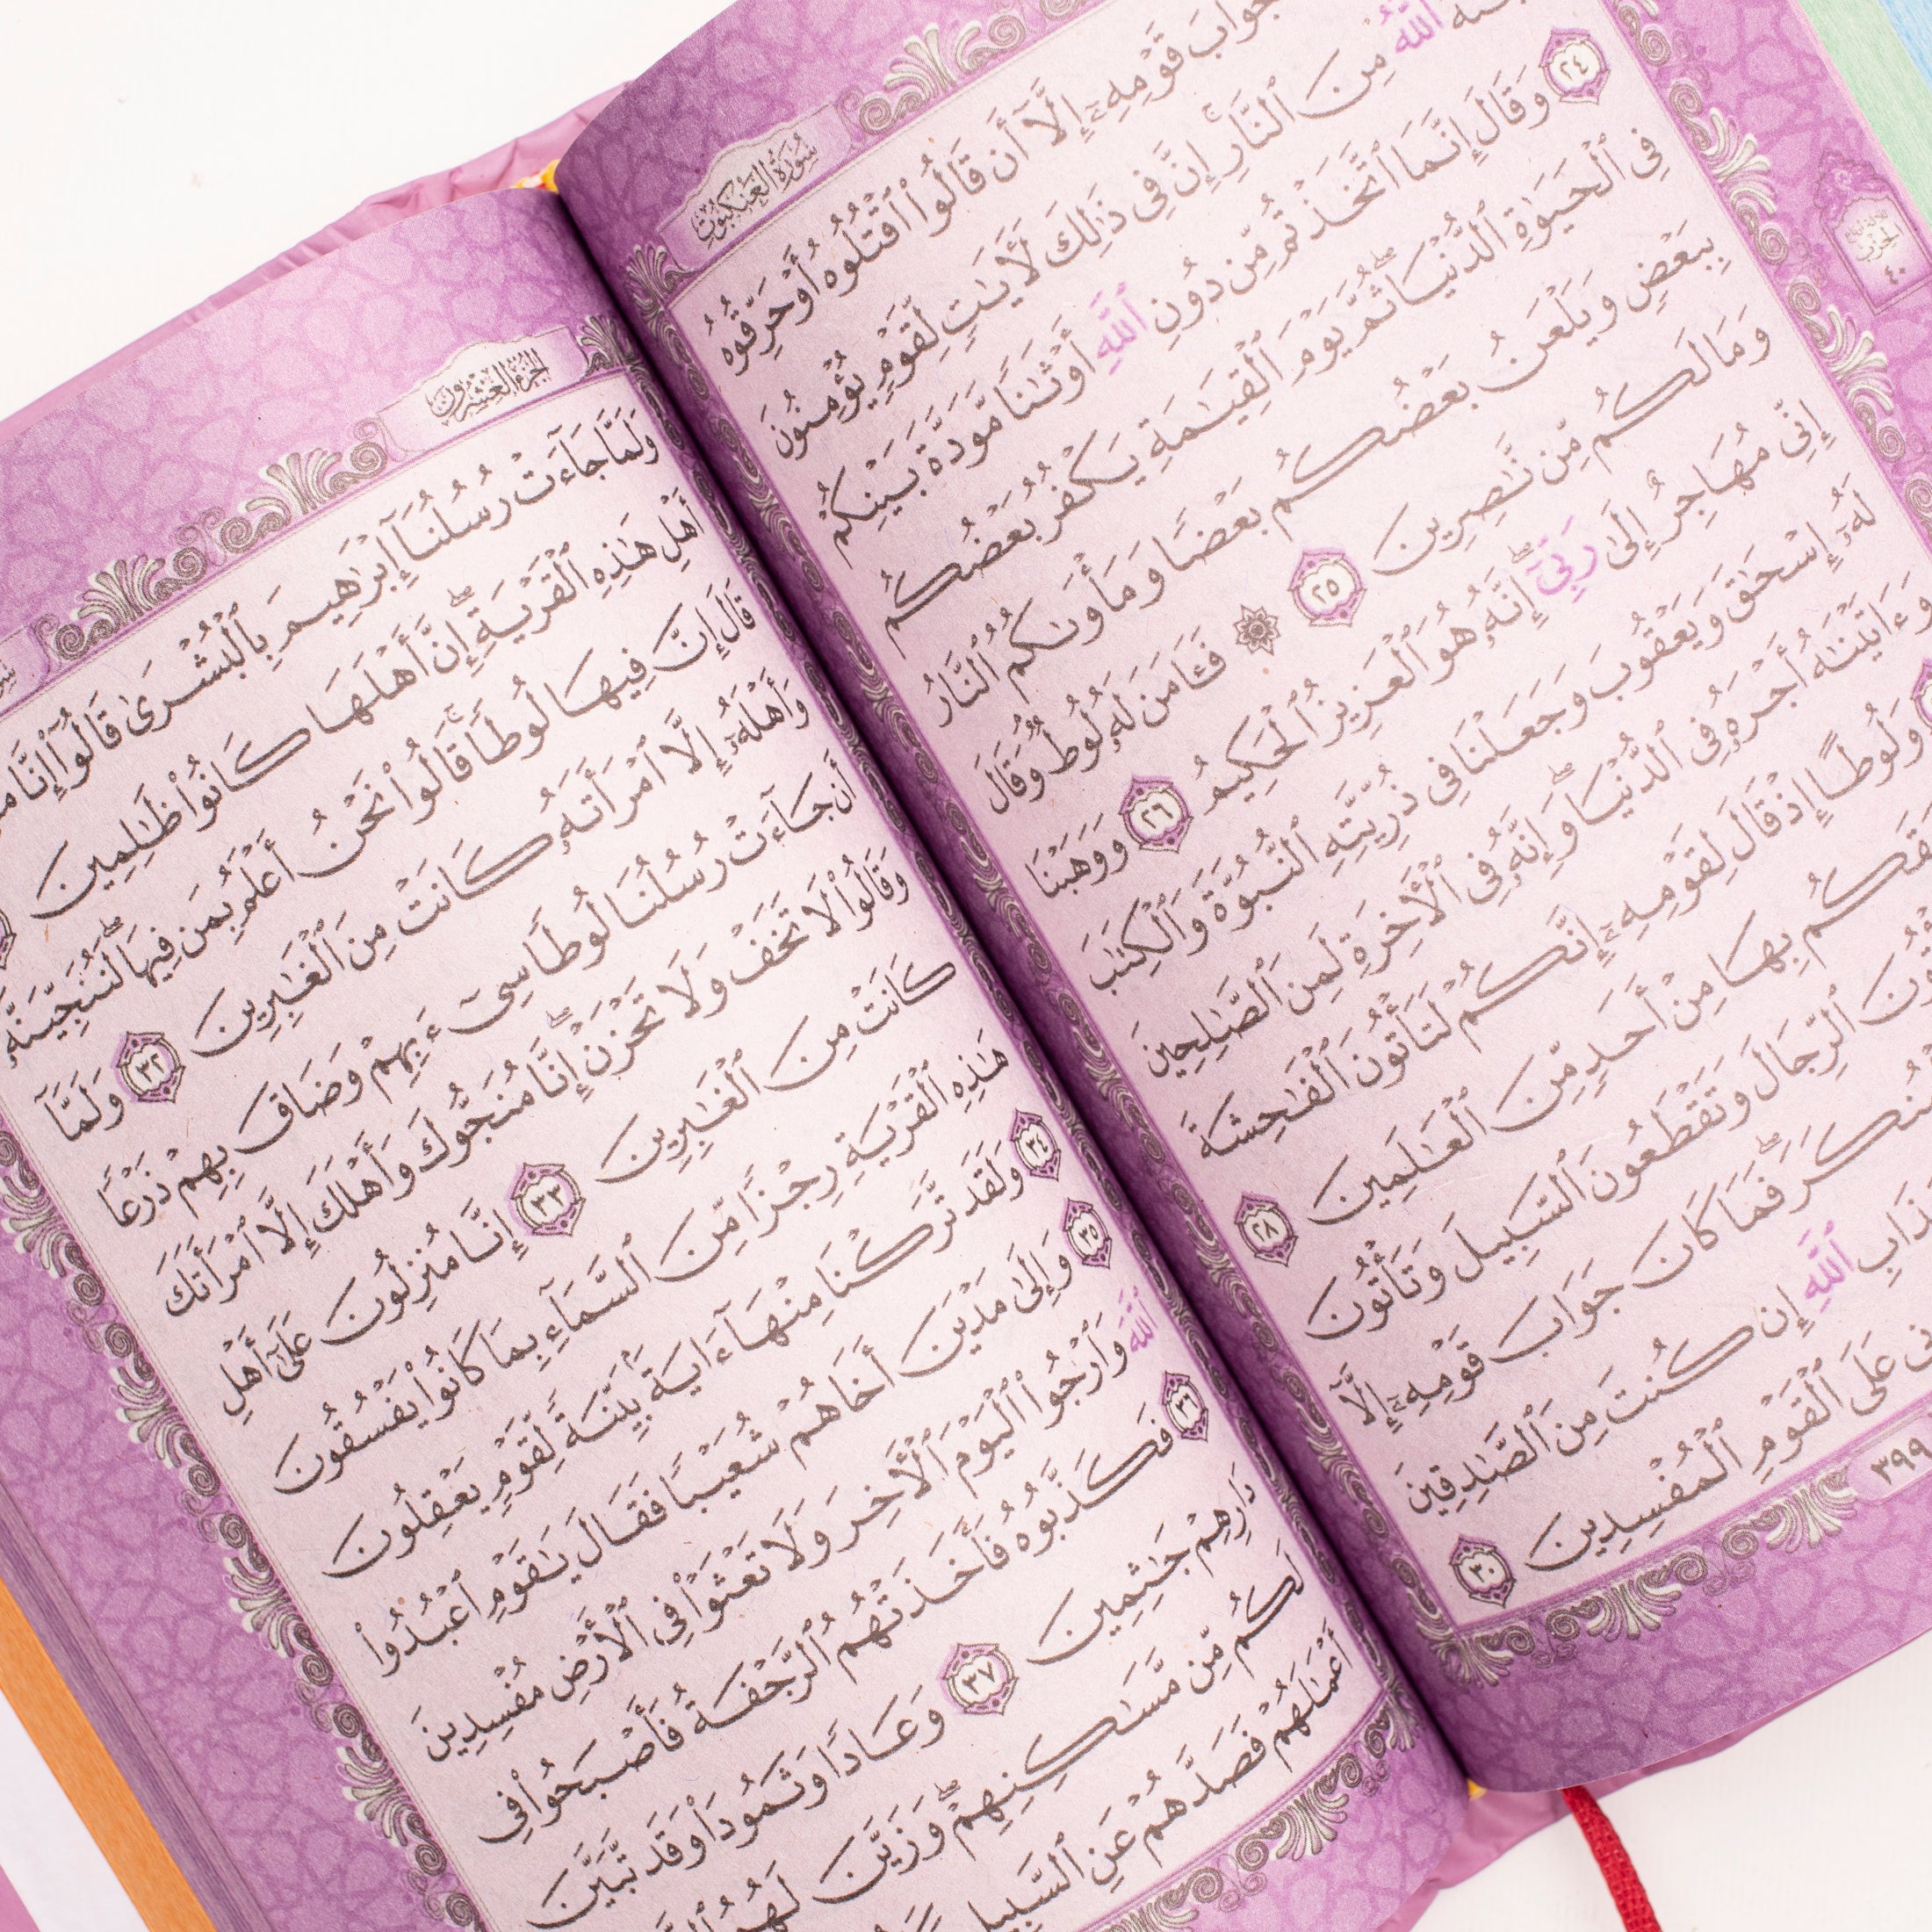 سُورَةُ العَنكَبُوتِ
جَوَابَ قَوْمِهِۦٓ إِلَّآ أَن قَالُوا۟ ٱقْتُلُوهُ أَوْ حَرِّقُوهُ
ٱللَّهُ مِنَ ٱلنَّارِ ۚ إِنَّ فِى ذَٰلِكَ لَـَٔايَـٰتٍ لِّقَوْمٍ يُؤْمِنُونَ
٢٤ وَقَالَ إِنَّمَا ٱتَّخَذْتُم مِّن دُونِ ٱللَّهِ أَوْثَـٰنًا مَّوَدَّةَ بَيْنِكُمْ
فِى ٱلْحَيَوٰةِ ٱلدُّنْيَا ۖ ثُمَّ يَوْمَ ٱلْقِيَـٰمَةِ يَكْفُرُ بَعْضُكُم
بِبَعْضٍ وَيَلْعَنُ بَعْضُكُم بَعْضًا وَمَأْوَىٰكُمُ ٱلنَّارُ
وَمَا لَكُم مِّن نَّـٰصِرِينَ ٢٥ ۞ فَـَٔامَنَ لَهُۥ لُوطٌ ۘ وَقَالَ
إِنِّى مُهَاجِرٌ إِلَىٰ رَبِّىٓ ۖ إِنَّهُۥ هُوَ ٱلْعَزِيزُ ٱلْحَكِيمُ ٢٦ وَوَهَبْنَا
لَهُۥٓ إِسْحَـٰقَ وَيَعْقُوبَ وَجَعَلْنَا فِى ذُرِّيَّتِهِ ٱلنُّبُوَّةَ وَٱلْكِتَـٰبَ
وَءَاتَيْنَـٰهُ أَجْرَهُۥ فِى ٱلدُّنْيَا ۖ وَإِنَّهُۥ فِى ٱلْـَٔاخِرَةِ لَمِنَ ٱلصَّـٰلِحِينَ
وَلُوطًا إِذْ قَالَ لِقَوْمِهِۦٓ إِنَّكُمْ لَتَأْتُونَ ٱلْفَـٰحِشَةَ
بِهَا مِنْ أَحَدٍ مِّنَ ٱلْعَـٰلَمِينَ ٢٨
ٱلرِّجَالَ وَتَقْطَعُونَ ٱلسَّبِيلَ وَتَأْتُونَ
فَمَا كَانَ جَوَابَ قَوْمِهِۦٓ إِلَّآ
ٱللَّهِ إِن كُنتَ مِنَ ٱلصَّـٰدِقِينَ
عَلَى ٱلْقَوْمِ ٱلْمُفْسِدِينَ ٣٠
٣٩٩
الحزب
٤٠
الجزء العشرون
وَلَمَّا جَآءَتْ رُسُلُنَآ إِبْرَٰهِيمَ بِٱلْبُشْرَىٰ قَالُوٓا۟ إِنَّا
أَهْلِ هَـٰذِهِ ٱلْقَرْيَةِ ۖ إِنَّ أَهْلَهَا كَانُوا۟ ظَـٰلِمِينَ
قَالَ إِنَّ فِيهَا لُوطًا ۚ قَالُوا۟ نَحْنُ أَعْلَمُ بِمَن فِيهَا ۖ لَنُنَجِّيَنَّهُۥ
وَأَهْلَهُۥٓ إِلَّا ٱمْرَأَتَهُۥ كَانَتْ مِنَ ٱلْغَـٰبِرِينَ ٣٢ وَلَمَّآ
أَن جَآءَتْ رُسُلُنَا لُوطًا سِىٓءَ بِهِمْ وَضَاقَ بِهِمْ ذَرْعًا
وَقَالُوا۟ لَا تَخَفْ وَلَا تَحْزَنْ ۖ إِنَّا مُنَجُّوكَ وَأَهْلَكَ إِلَّا ٱمْرَأَتَكَ
كَانَتْ مِنَ ٱلْغَـٰبِرِينَ ٣٣ إِنَّا مُنزِلُونَ عَلَىٰٓ أَهْلِ
هَـٰذِهِ ٱلْقَرْيَةِ رِجْزًا مِّنَ ٱلسَّمَآءِ بِمَا كَانُوا۟ يَفْسُقُونَ
٣٤ وَلَقَد تَّرَكْنَا مِنْهَآ ءَايَةًۢ بَيِّنَةً لِّقَوْمٍ يَعْقِلُونَ
٣٥ وَإِلَىٰ مَدْيَنَ أَخَاهُمْ شُعَيْبًا فَقَالَ يَـٰقَوْمِ ٱعْبُدُوا۟
ٱللَّهَ وَٱرْجُوا۟ ٱلْيَوْمَ ٱلْـَٔاخِرَ وَلَا تَعْثَوْا۟ فِى ٱلْأَرْضِ مُفْسِدِينَ
٣٦ فَكَذَّبُوهُ فَأَخَذَتْهُمُ ٱلرَّجْفَةُ فَأَصْبَحُوا۟ فِى
دَارِهِمْ جَـٰثِمِينَ ٣٧ وَعَادًا وَثَمُودَا۟ وَقَد تَّبَيَّنَ
لَكُم مِّن مَّسَـٰكِنِهِمْ ۖ وَزَيَّنَ لَهُمُ
أَعْمَـٰلَهُمْ فَصَدَّهُمْ عَنِ ٱلسَّبِيلِ